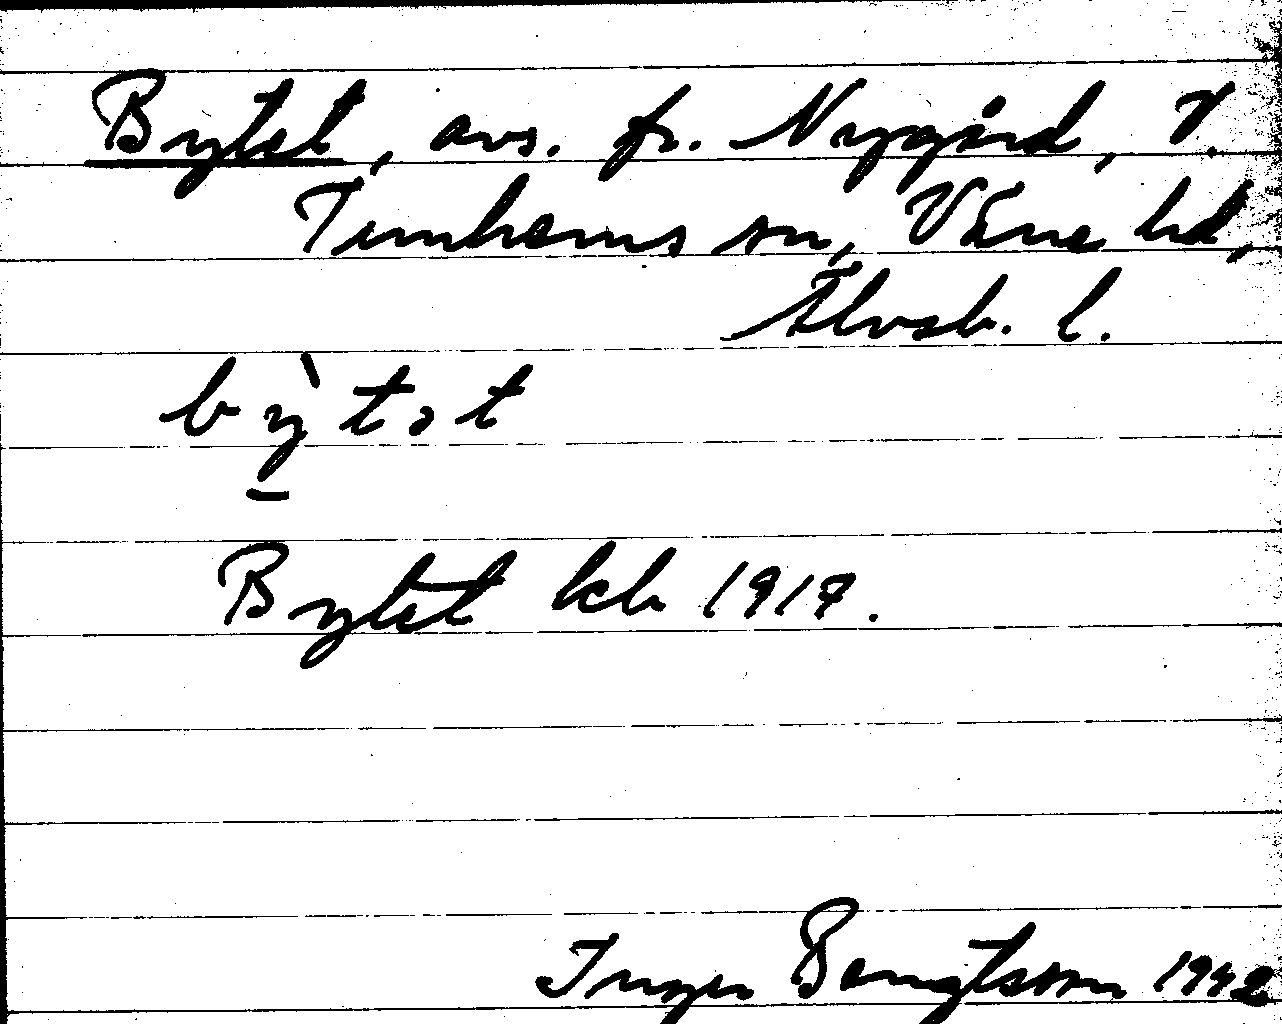 Bytet, avs. fr. Nygård, V.
Tunhems sn, Väne hd,
Älvsb. l.
bỳtət
Bytet kb 1917.
Inger Bengtsson 1942